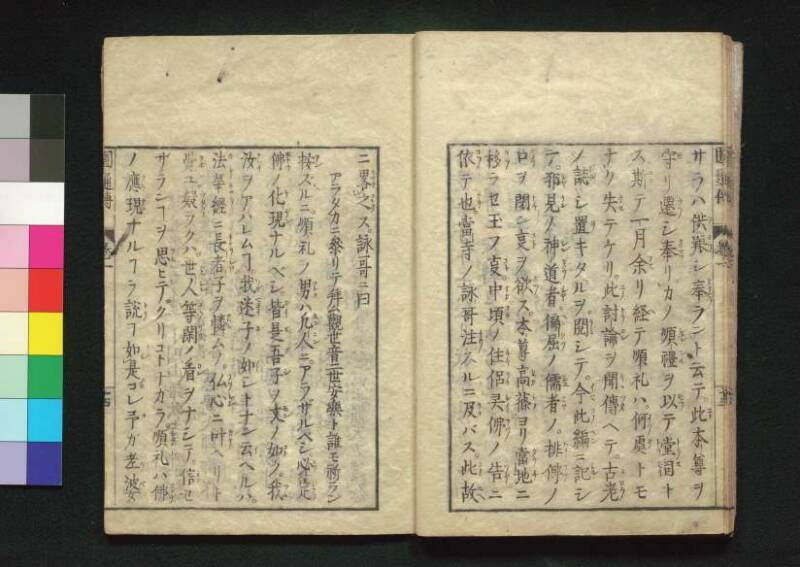 サラハ供養シ奉ラント云テ此本尊ヲ
守リ還シ奉リカノ順禮ヲ以テ堂固ト
ス斯テ一月余リ経テ順礼ハ何處トモ
ナク失テケリ此討論ヲ聞傳ヘテ古老
ノ誌シ置キタルヲ閲シテ今此編ニ記シ
テ邪見ノ神道者偏屈ノ儒者ノ排佛ノ
口ヲ閉シ哀ヲ欲ス本尊高藤ヨリ當地ニ
移ラセ玉フ叓中頃ノ住侶㚑佛ノ告ニ
依テ也當寺ノ詠哥注スルニ及バス此故
ニ畧之ス詠哥ニ曰
アラタカニ參リテ拜ム觀世音二世安樂ト誰モ祈ラン
按ズルニ順礼ノ男ハ凡人ニアラザルベシ必定
佛ノ化現ナルベシ皆是吾子ヲ父ノ如ク我
汝ヲアハレムヿ我迷子ノ如シトナン云ヘルハ
法華經ニ長者子ヲ譬ムノ仏心ニ叶ヘリト
ユ疑ヲクハ世人等閑ノ看ヲナシテ信セ
サランヿヲ思ヒテクリコトナカラ順礼ハ佛
ノ應現ナルヿヲ説ヿ如是コレ予カ老婆
圓通傳